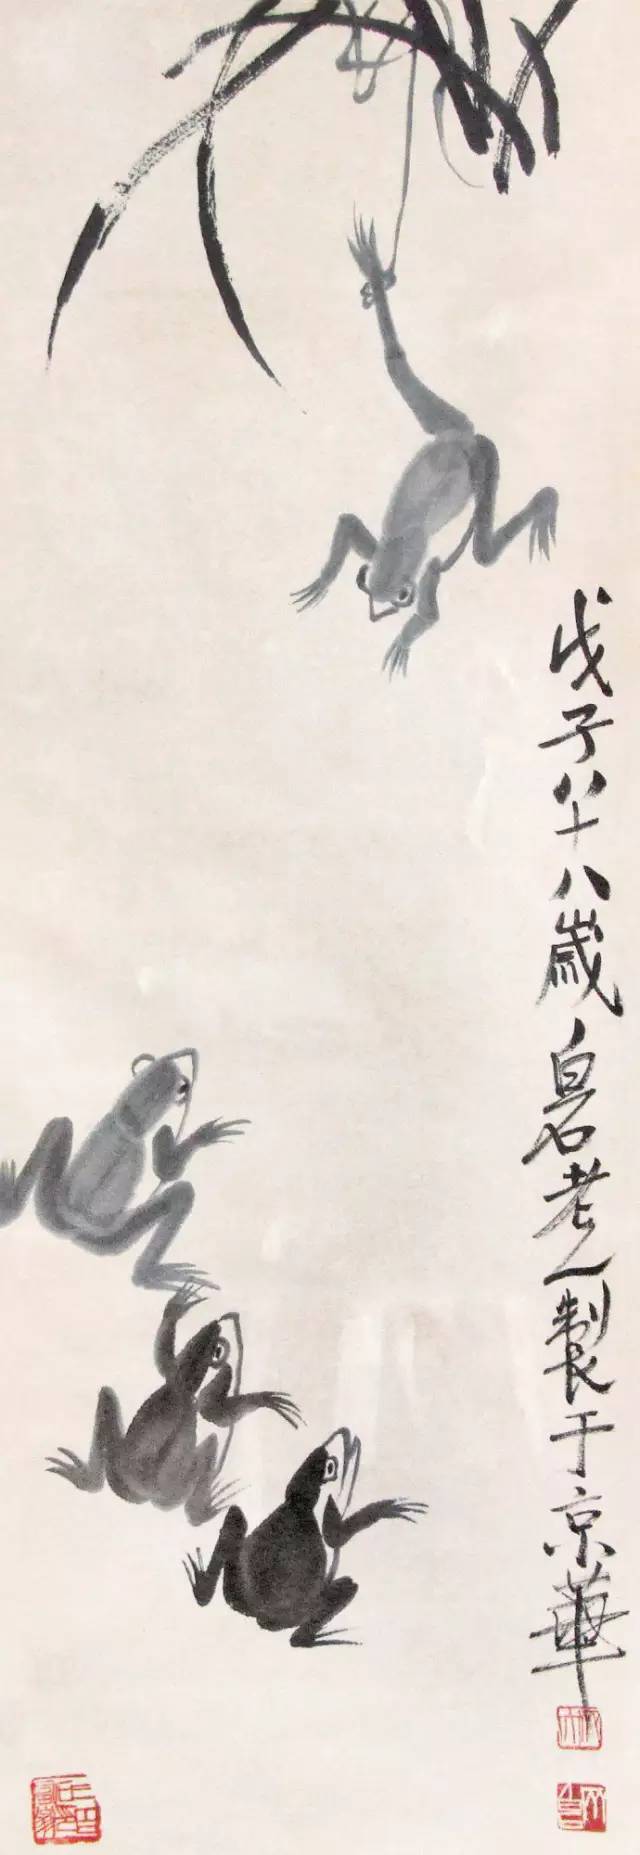 戊子八十八歲白石老人製于京華